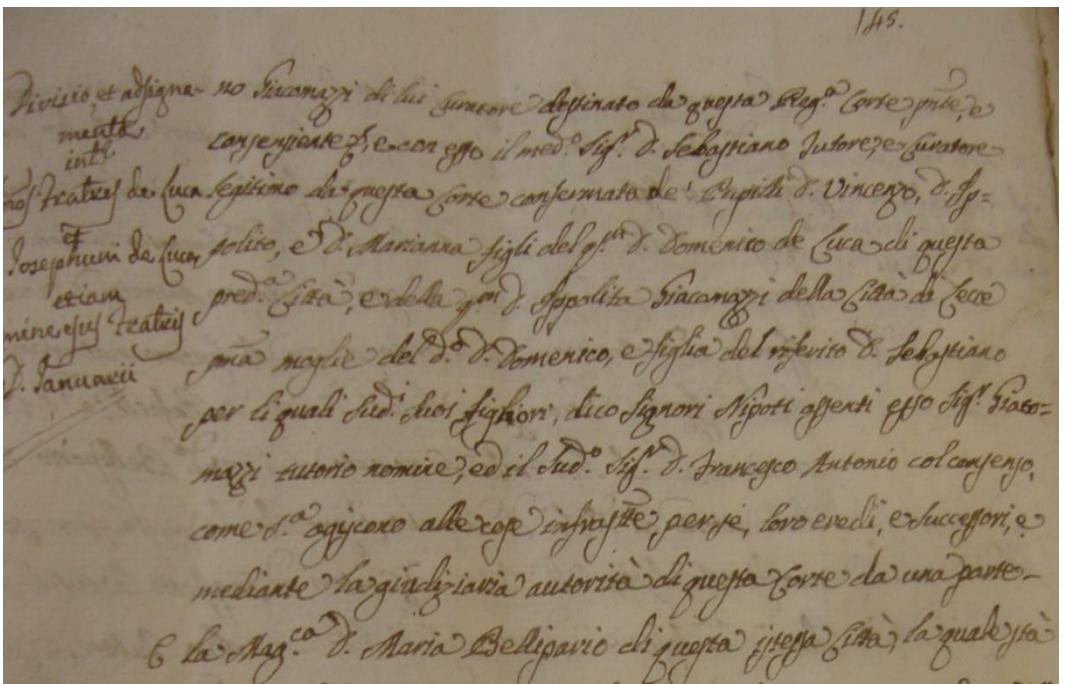 145.
Divisio, et adsigna-
menta
int.
fratres de Luca
et
Josephum de Luca,
etiam
nomine ejus fratris
D. Januarii
no Giacomazzi di lui Curatore destinato da questa Reg.a Corte pnte, e
consenziente &, e con esso il med.o Sig.r D. Sebastiano Tutore, e Curatore
legitimo da questa Corte confermato de' Pupilli D. Vincenzo, D. Ip=
polito, e D. Marianna figli del q.m D. Domenico de Luca di questa
pred.a Città, e della q.m D. Ippolita Giacomazzi della Città di Lecce
pma moglie del d.o D. Domenico, e figlia del riferito D. Sebastiano
per li quali sud.i suoi figliori, dico Signori Nipoti assenti esso Sig.r Giaco=
mazzi tutorio nomine, ed il sud.o Sig.r D. Francesco Antonio col consenso,
come s.a agiscono alle cose infrastte per se, loro eredi, e successori, e
mediante la giudiziaria autorità di questa Corte da una parte-
E la Mag.ca D. Maria Bellisario di questa istessa Città, la quale stà